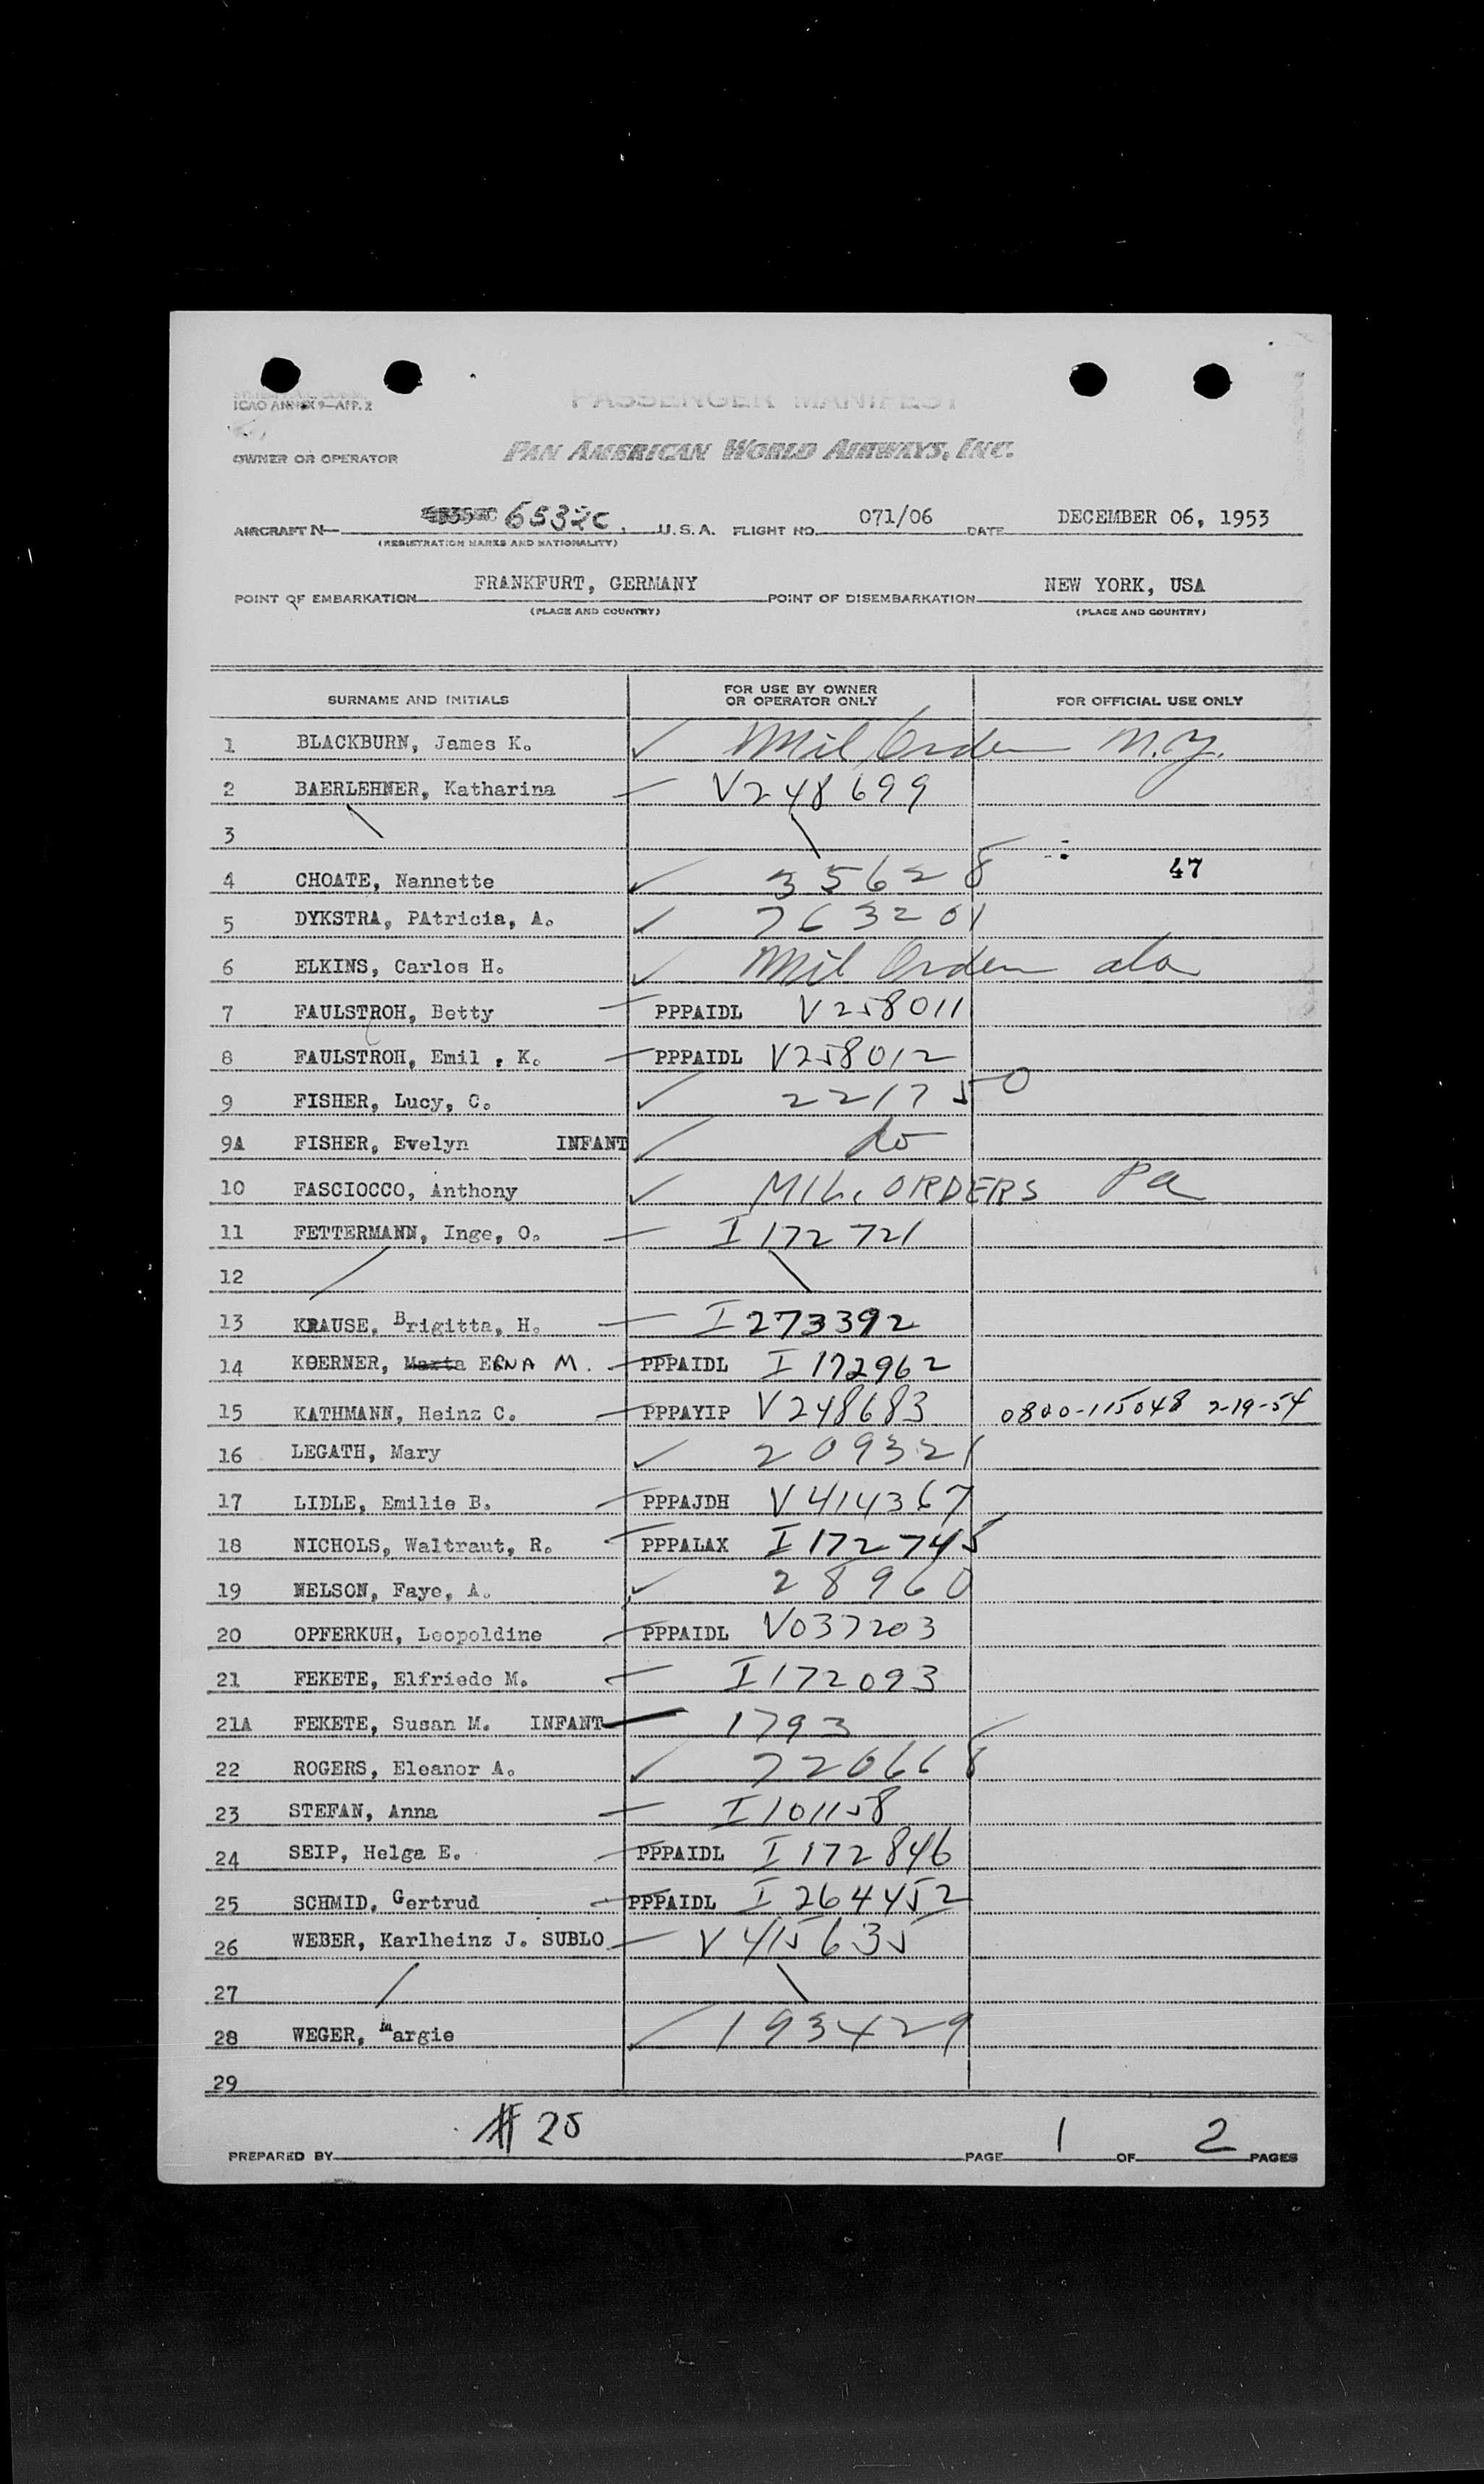 ICAO ANNEX 9—APP. 2
PASSENGER MANIFEST
OWNER OR OPERATOR PAN AMERICAN WORLD AIRWAYS, INC.
AIRCRAFT N— 6532C, U.S.A. FLIGHT NO. 071/06 DATE DECEMBER 06, 1953
(REGISTRATION MARKS AND NATIONALITY)
POINT OF EMBARKATION FRANKFURT, GERMANY POINT OF DISEMBARKATION NEW YORK, USA
(PLACE AND COUNTRY) (PLACE AND COUNTRY)
SURNAME AND INITIALS FOR USE BY OWNER OR OPERATOR ONLY FOR OFFICIAL USE ONLY
1 BLACKBURN, James K. ✓ Mil Orden N.Y.
2 BAERLEHNER, Katharina — V248699
3
4 CHOATE, Nannette ✓ 35628 47
5 DYKSTRA, PAtricia, A. ✓ 763201
6 ELKINS, Carlos H. ✓ Mil Orden ala
7 FAULSTROH, Betty — PPPAIDL V258011
8 FAULSTROH, Emil , K. — PPPAIDL V258012
9 FISHER, Lucy, C. ✓ 221750
9A FISHER, Evelyn INFANT ✓ do
10 FASCIOCCO, Anthony ✓ MIL. ORDERS Pa
11 FETTERMANN, Inge, O. — I172721
12
13 KRAUSE, Brigitta, H. — I273392
14 KOERNER, Marta ERNA M. — PPPAIDL I172962
15 KATHMANN, Heinz C. — PPPAYIP V248683 0800-115048 2-19-54
16 LEGATH, Mary ✓ 209321
17 LIDLE, Emilie B. — PPPAJDH V414367
18 NICHOLS, Waltraut, R. — PPPALAX I172745
19 NELSON, Faye, A. ✓ 28960
20 OPFERKUH, Leopoldine — PPPAIDL V037203
21 FEKETE, Elfriede M. — I172093
21A FEKETE, Susan M. INFANT — 1793
22 ROGERS, Eleanor A. ✓ 720668
23 STEFAN, Anna — I101158
24 SEIP, Helga E. — PPPAIDL I172846
25 SCHMID, Gertrud — PPPAIDL I264452
26 WEBER, Karlheinz J. SUBLO — V415635
27
28 WEGER, Margie ✓ 193429
29
# 25
PREPARED BY PAGE 1 OF 2 PAGES